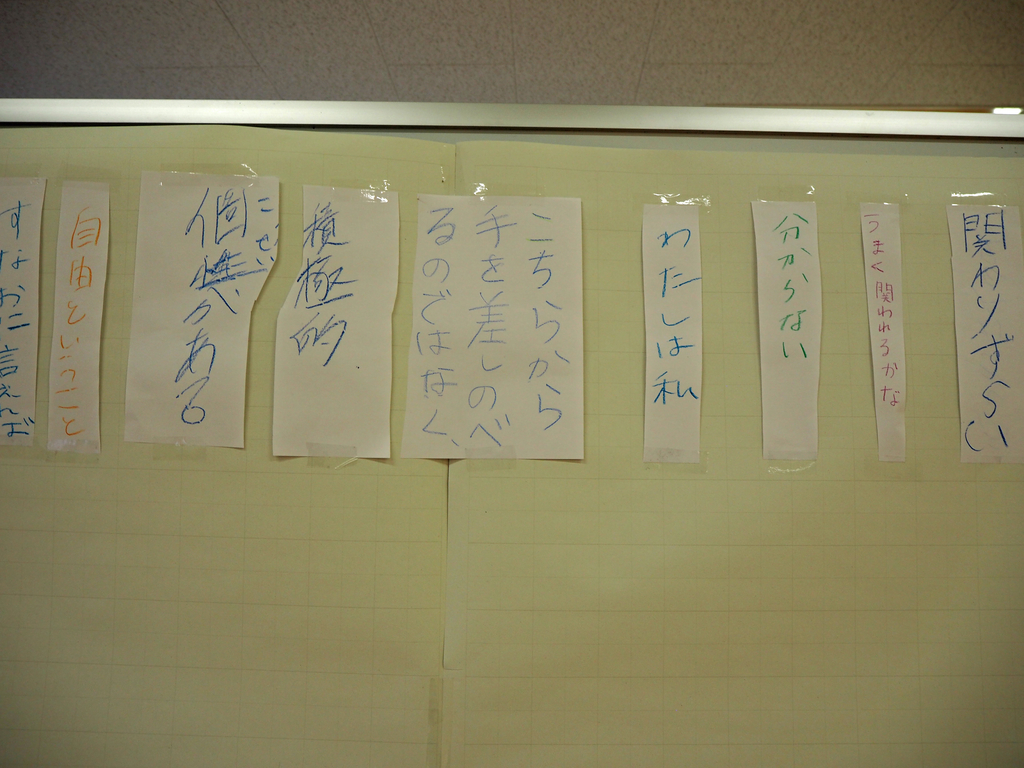 関わりずらい
うまく関われるかな
分からない
わたしは私
こちらから
手を差しのべ
るのではなく、
積極的
こせい
個性がある
自由ということ
すなおに言えれば